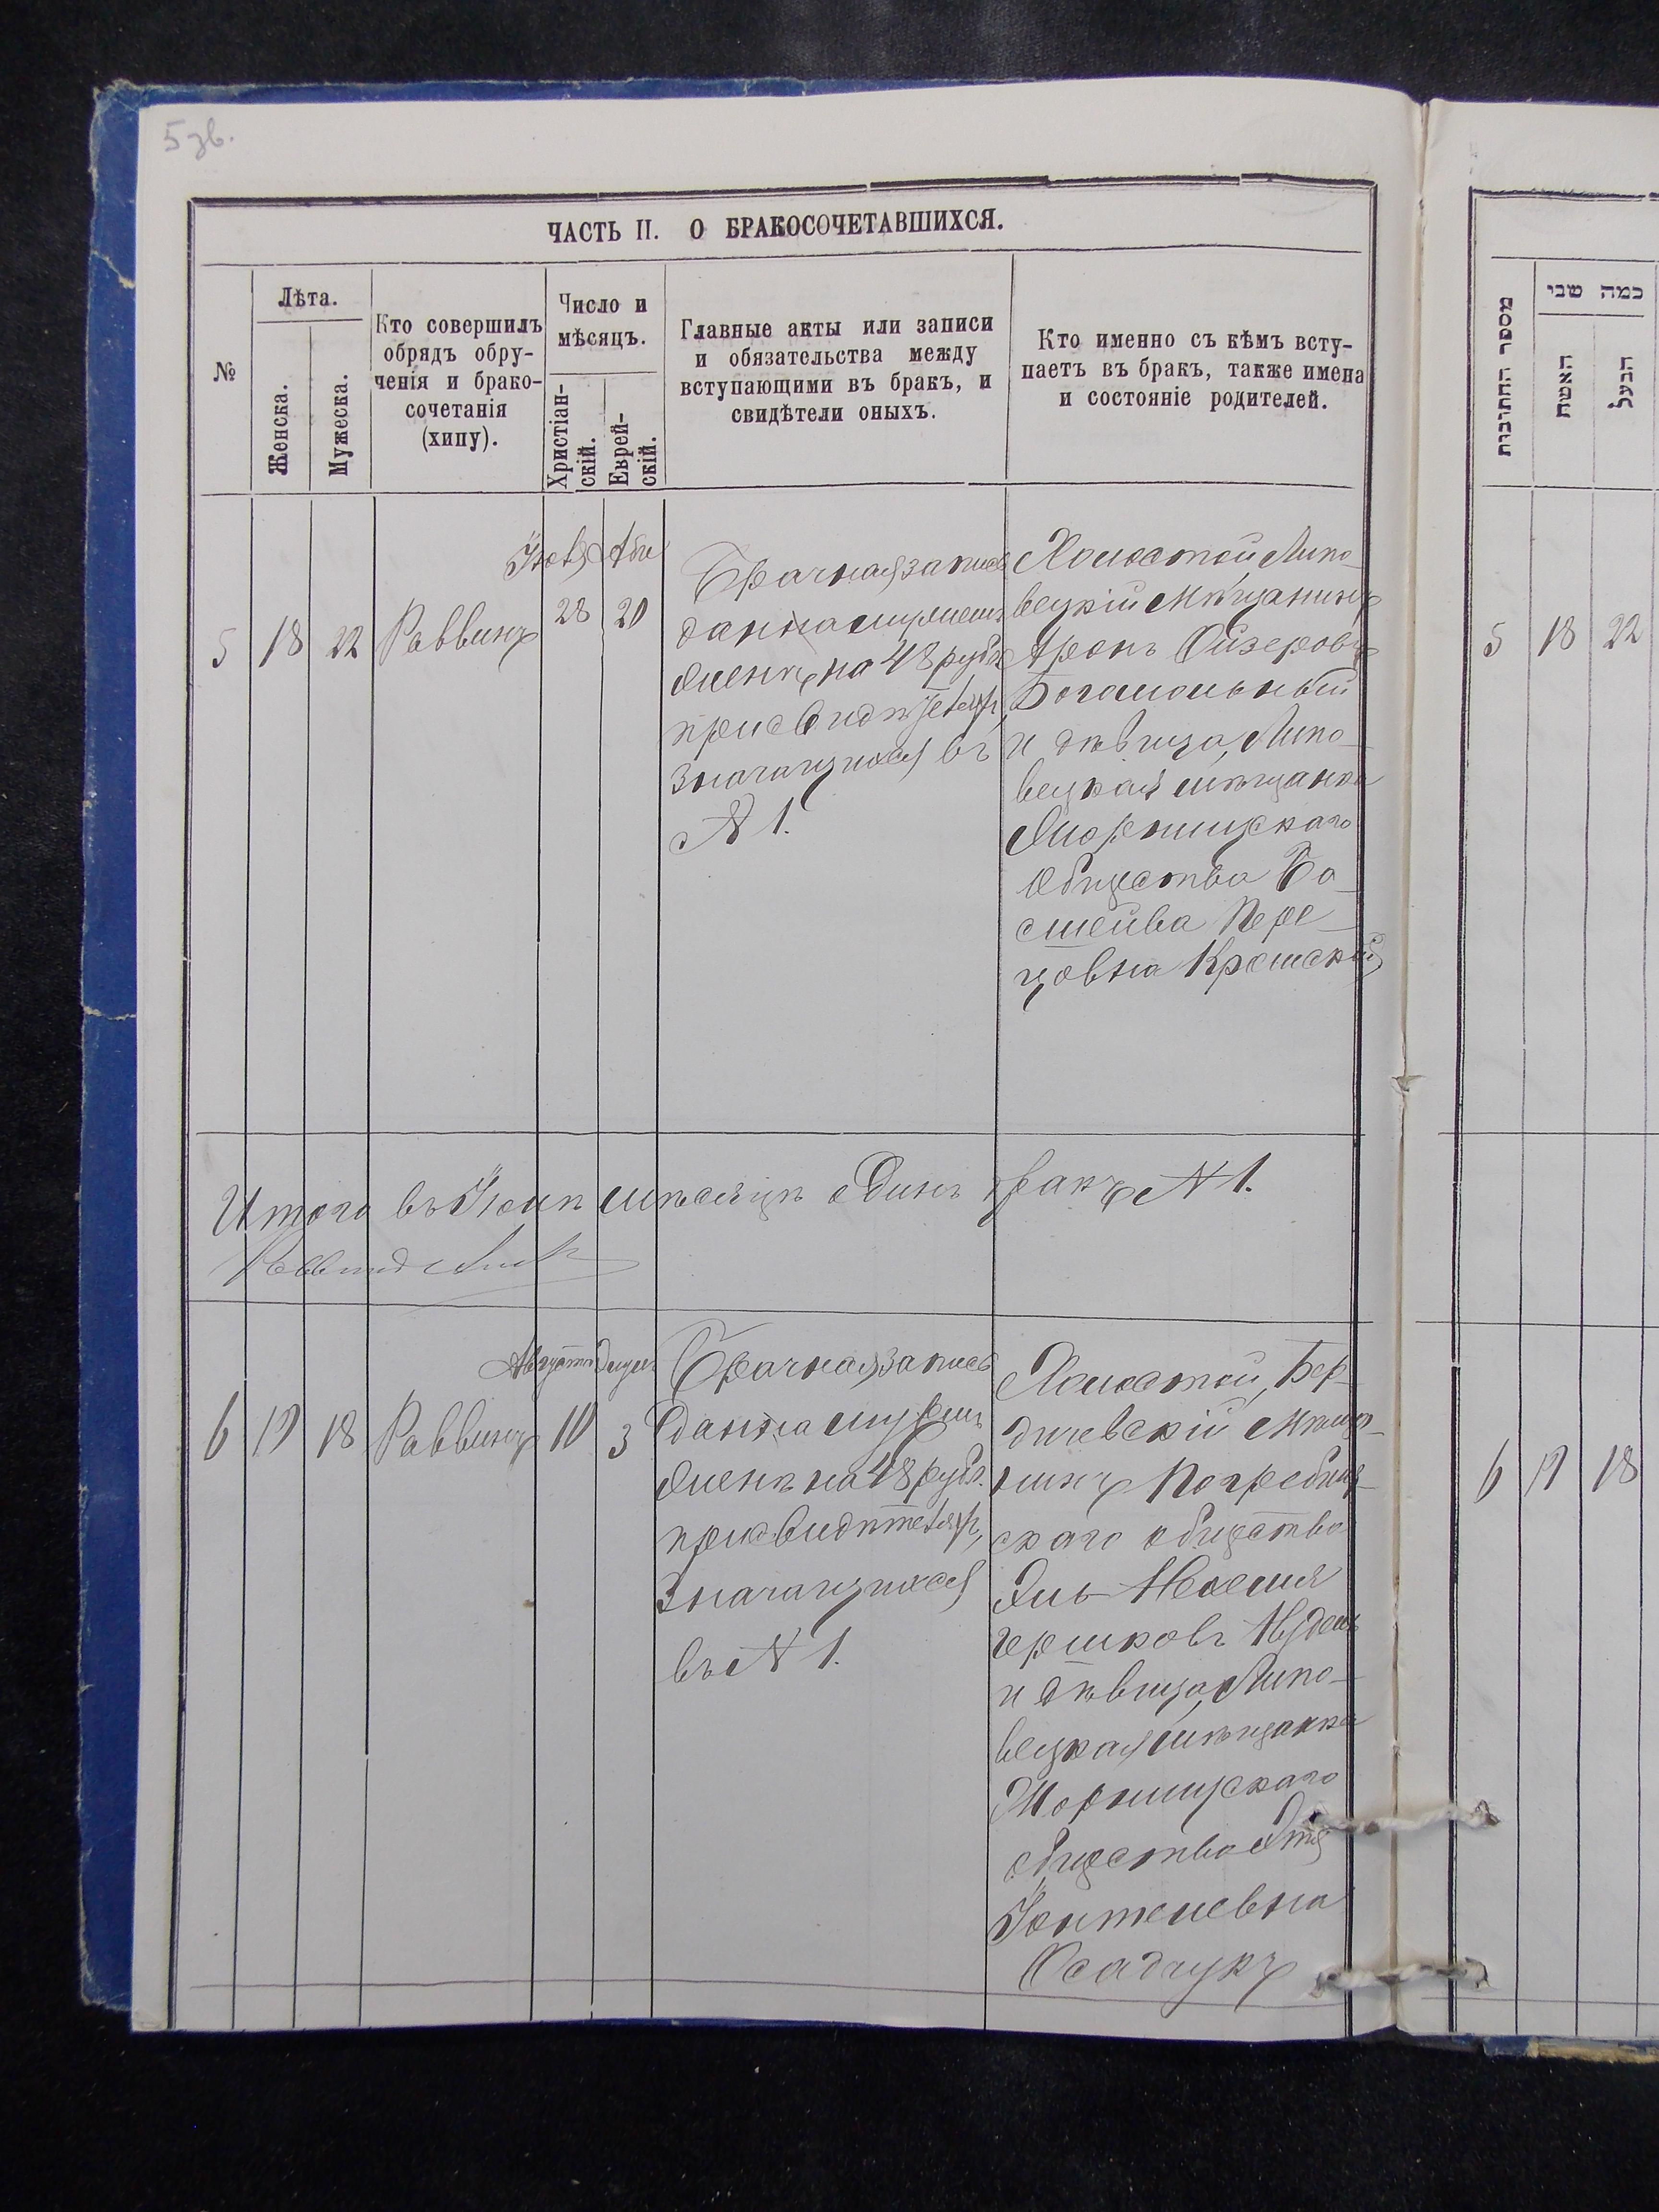 5 зв.
ЧАСТЬ II. О БРАКОСОЧЕТАВШИХСЯ.
№
Лѣта.
Женска.
Мужеска.
Кто совершилъ
обрядъ обру-
ченія и брако-
сочетанія
(хипу).
Число и
мѣсяцъ.
Христіан-
скій.
Еврей-
скій.
Главные акты или записи
и обязательства между
вступающими въ бракъ, и
свидѣтели оныхъ.
Кто именно съ кѣмъ всту-
паетъ въ бракъ, также имена
и состояніе родителей.
5
18
22
Раввинъ
Іюля
28
Аби
20
Брачная запись
данна мужемъ
женѣ на 48 рубл.
при свидѣтеляхъ,
значащихся въ
№ 1.
Холостой Липо-
вецкій мѣщанинъ
Аронъ Ойзеровъ
Богомольный
и дѣвица, Липо-
вецкая мѣщанка
Жорнищскаго
общества Ба-
сшейва Пере-
цовна Кремской
Итого въ Іюлѣ мѣсяцѣ одинъ бракъ № 1.
Раввинъ
6
19
18
Раввинъ
Августа
10
Элулъ
3
Брачная запись
данна мужемъ
женѣ на 48 рубл.
при свидѣтеляхъ,
значащихся
въ № 1.
Холостой, Бер-
дичевскій мѣща-
нинъ Погребищ-
скаго общества
Эль Нехемія
Гершковъ Нудель
и дѣвица, Липо-
вецкая мѣщанка
Жорнищскаго
общества Этя
Іонтелевна
Осадчукъ
מספר החתונות
כמה שני
האשה
הבעל
5
18
22
6
19
18